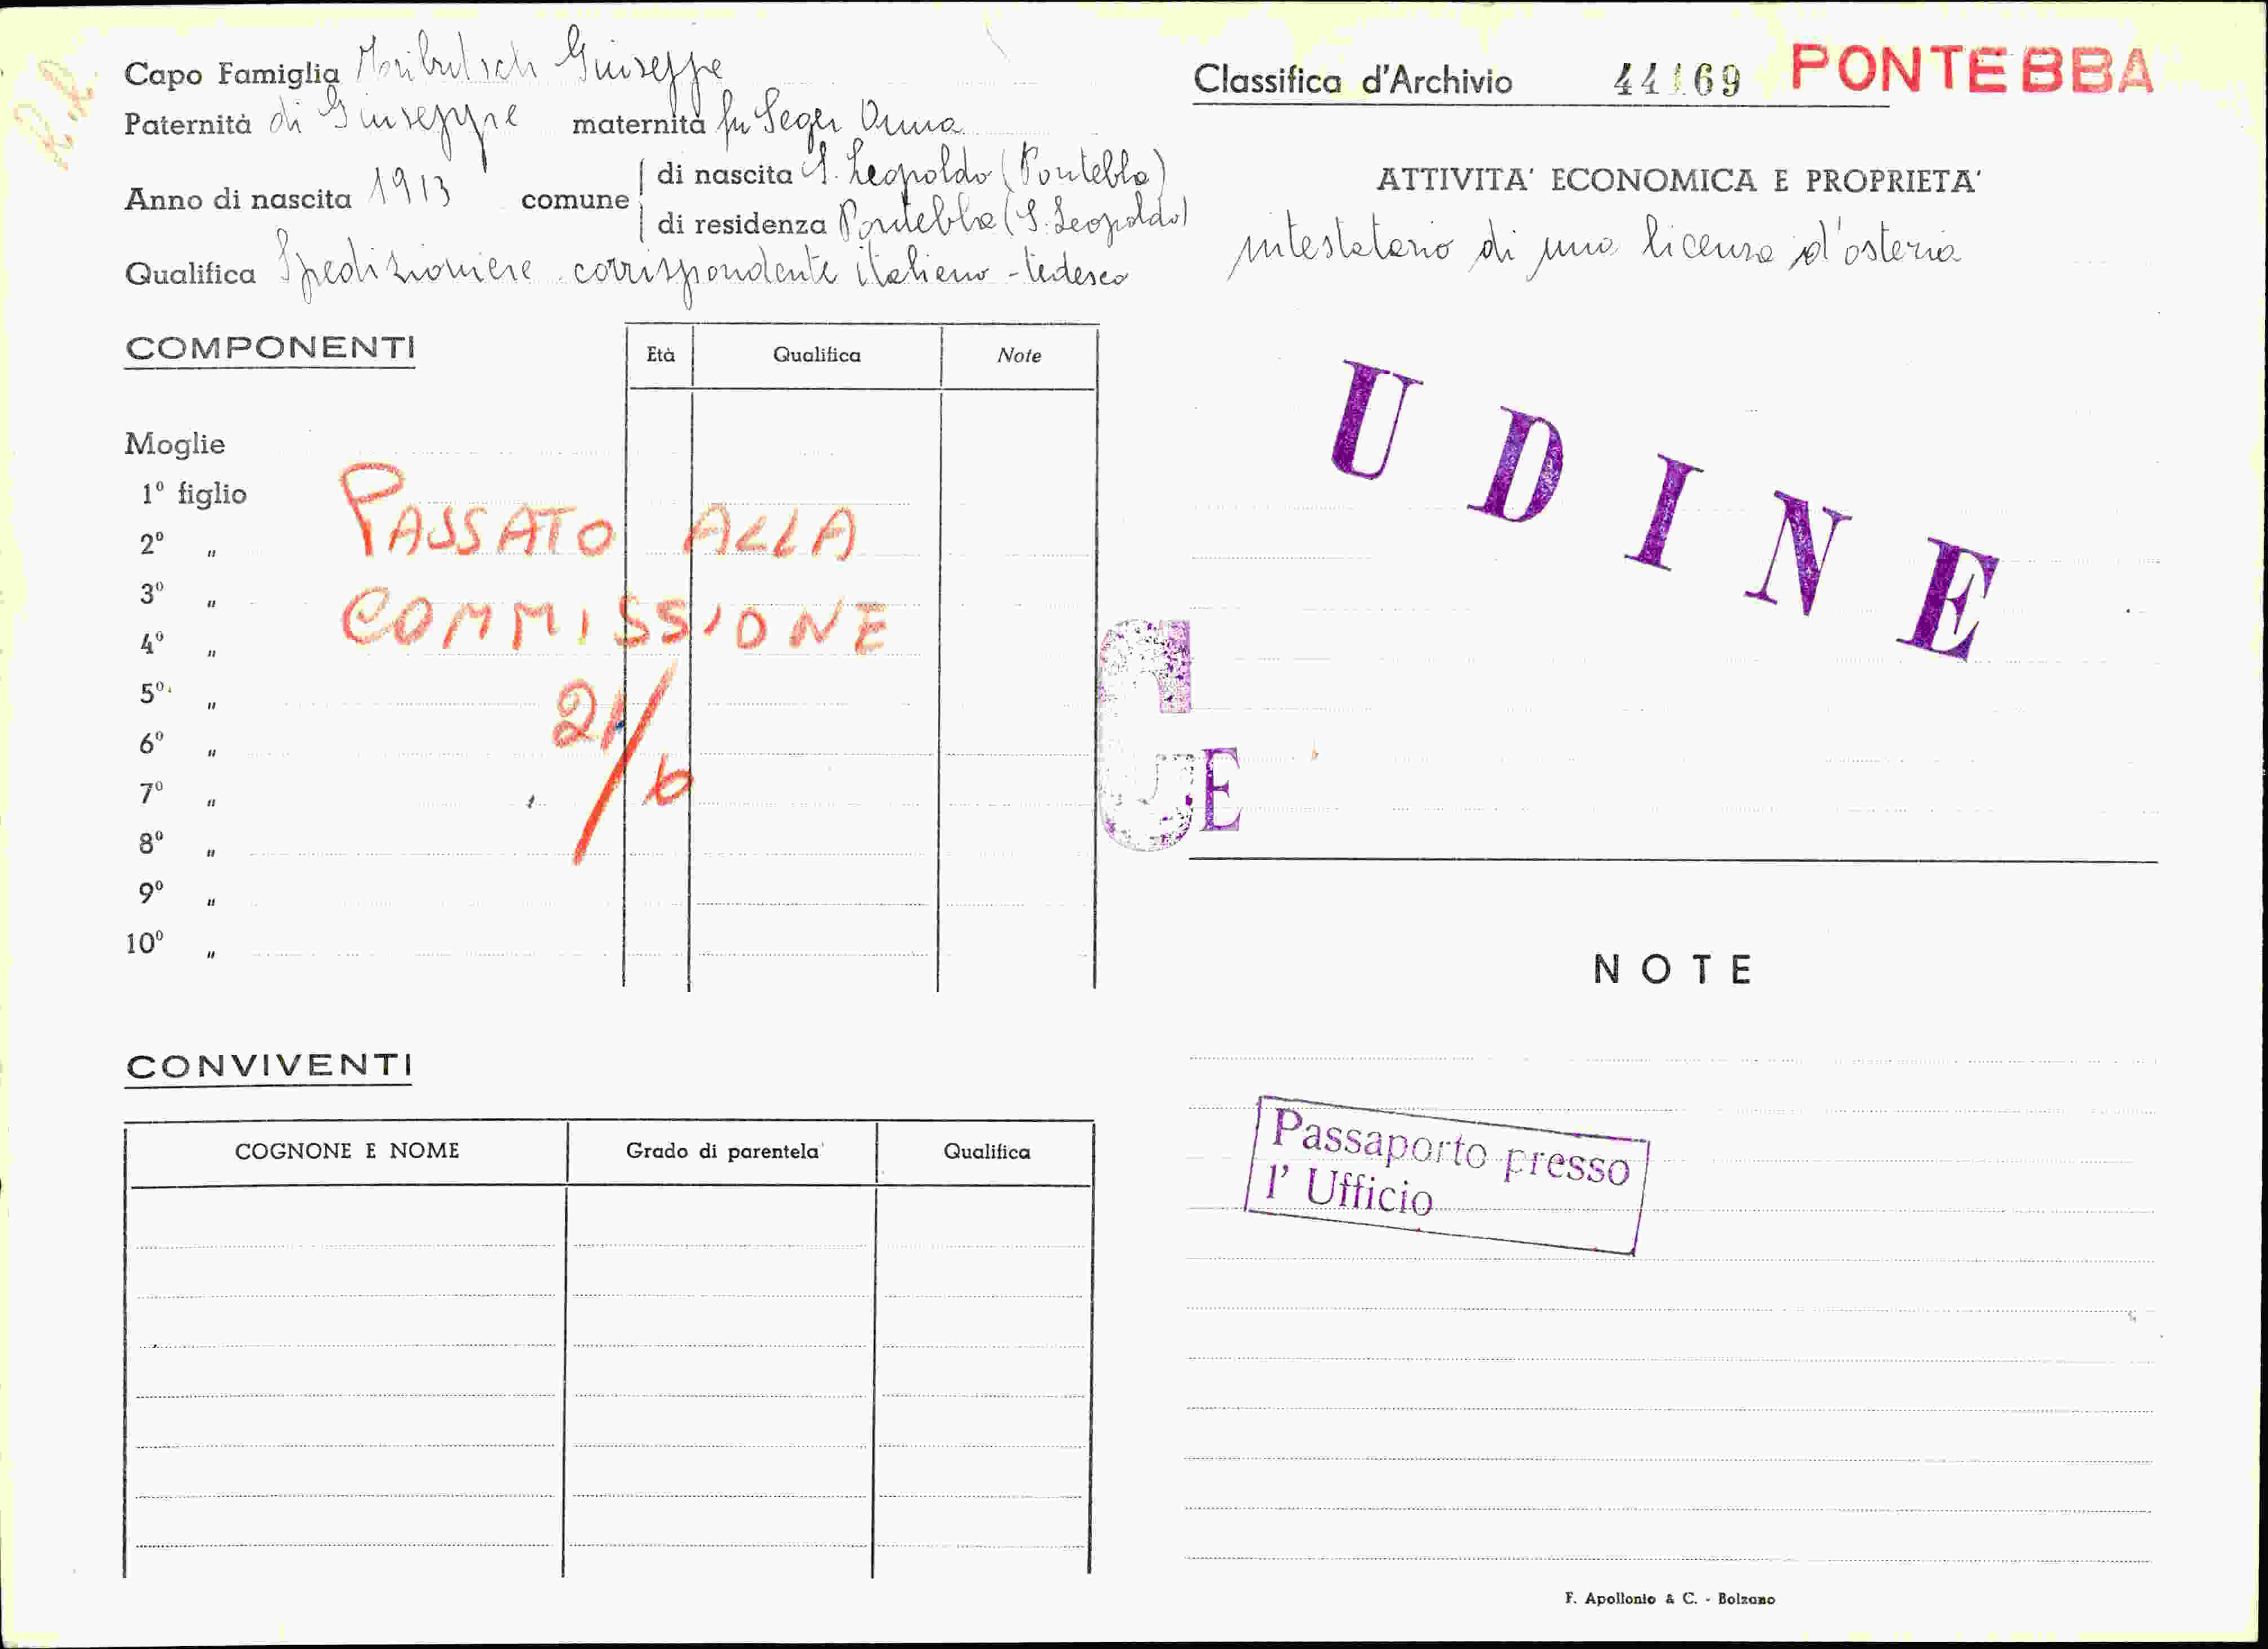 Capo Famiglia Moributsch Giuseppe
Paternità di Giuseppe maternità fu Seger Anna
Anno di nascita 1913 comune di nascita S. Leopoldo (Pontebba)
di residenza Pontebba (S. Leopoldo)
Qualifica Spedizioniere corrispondente italiano - tedesco
COMPONENTI
Età Qualifica Note
Moglie
1º figlio
2º "
3º "
4º "
5º "
6º "
7º "
8º "
9º "
10º "
PASSATO ALLA
COMMISSIONE
21/6
CONVIVENTI
COGNONE E NOME Grado di parentela' Qualifica
Classifica d'Archivio 44169 PONTEBBA
ATTIVITA' ECONOMICA E PROPRIETA'
intestatario di una licenza d'osteria
UDINE
G E
NOTE
Passaporto presso
l' Ufficio
F. Apollonio & C. - Bolzano